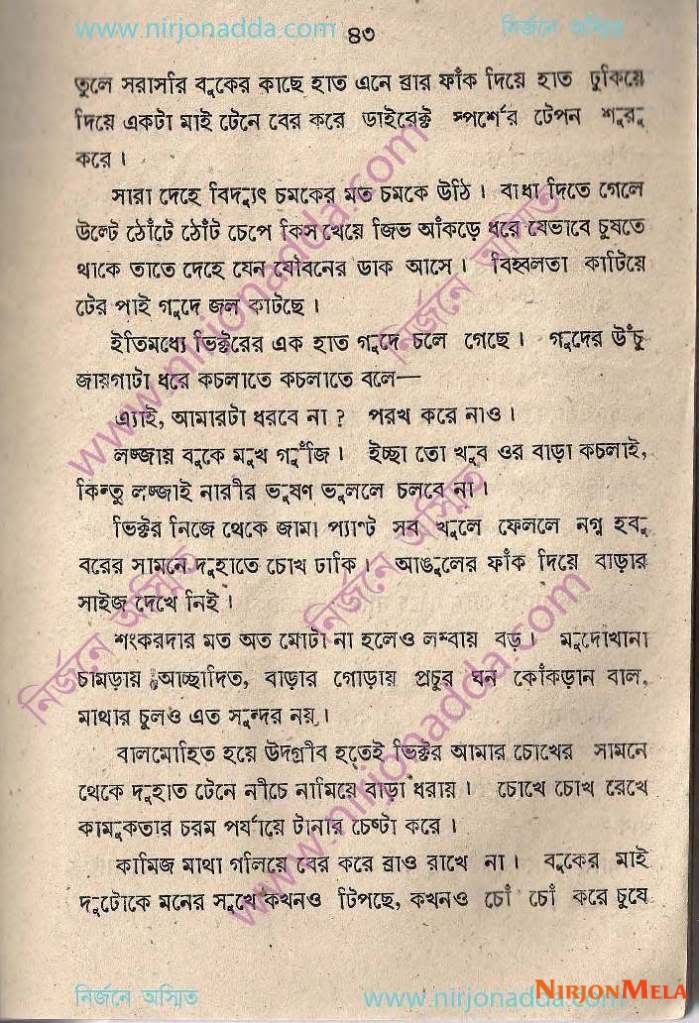 www.nirjonadda.com ৪৩ নির্জনে অস্মিত
তুলে সরাসরি বুকের কাছে হাত এনে ব্রার ফাঁক দিয়ে হাত ঢুকিয়ে
দিয়ে একটা মাই টেনে বের করে ডাইরেক্ট স্পর্শের টেপন শুরু
করে।
সারা দেহে বিদ্যুৎ চমকের মত চমকে উঠি। বাধা দিতে গেলে
উল্টে ঠোঁটে ঠোঁট চেপে কিস খেয়ে জিভ আঁকড়ে ধরে যেভাবে চুষতে
থাকে তাতে দেহে যেন যৌবনের ডাক আসে। বিহ্বলতা কাটিয়ে
টের পাই গুদে জল কাটছে।
ইতিমধ্যে ভিক্টরের এক হাত গুদে চলে গেছে। গুদের উঁচু
জায়গাটা ধরে কচলাতে কচলাতে বলে—
এ্যাই, আমারটা ধরবে না? পরখ করে নাও।
লজ্জায় বুকে মুখ গুঁজি। ইচ্ছা তো খুব ওর বাড়া কচলাই,
কিন্তু লজ্জাই নারীর ভূষণ ভুললে চলবে না।
ভিক্টর নিজে থেকে জামা প্যাণ্ট সব খুলে ফেললে নগ্ন হবু
বরের সামনে দুহাতে চোখ ঢাকি। আঙুলের ফাঁক দিয়ে বাড়ার
সাইজ দেখে নিই।
শংকরদার মত অত মোটা না হলেও লম্বায় বড়। মুদোখানা
চামড়ায় আচ্ছাদিত, বাড়ার গোড়ায় প্রচুর ঘন কোঁকড়ান বাল,
মাথার চুলও এত সুন্দর নয়।
বালমোহিত হয়ে উদগ্রীব হতেই ভিক্টর আমার চোখের সামনে
থেকে দুহাত টেনে নীচে নামিয়ে বাড়া ধরায়। চোখে চোখ রেখে
কামুকতার চরম পর্যায়ে টানার চেষ্টা করে।
কামিজ মাথা গলিয়ে বের করে ব্রাও রাখে না। বুকের মাই
দুটোকে মনের সুখে কখনও টিপছে, কখনও চোঁ চোঁ করে চুষে
www.nirjonadda.com
নির্জনে অস্মিত
www.nirjonadda.com
নির্জনে অস্মিত
নির্জনে অস্মিত
নির্জনে অস্মিত www.nirjonadda.com
NIRJONMELA